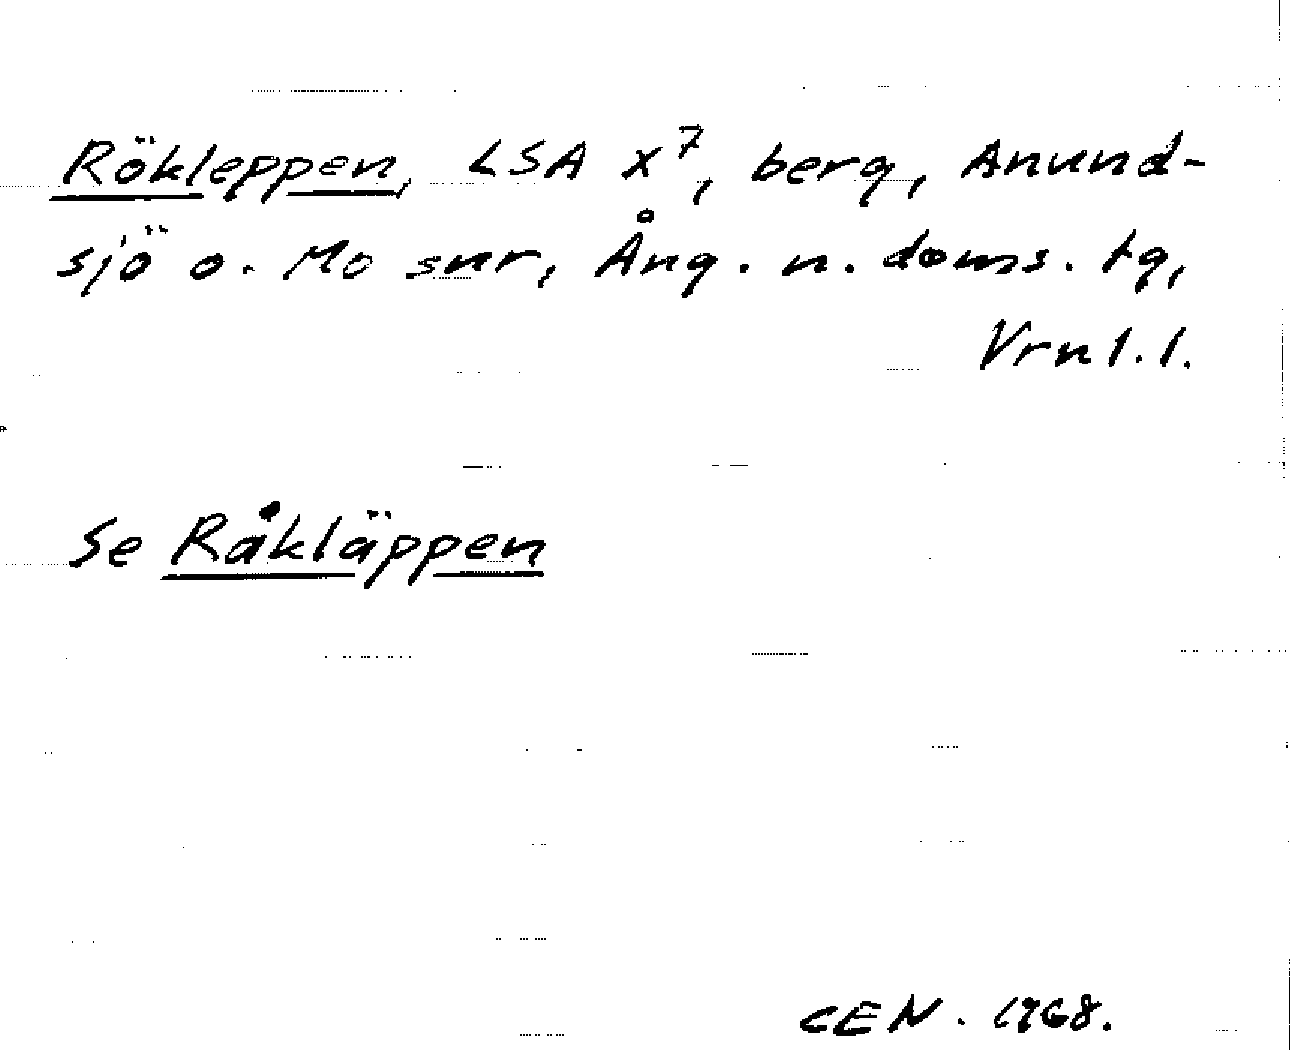 Rökleppen, LSA X⁷, berg, Anund-
sjö o. Mo snr, Ång. n. doms. tg,
Vrnl.l.
Se Råkläppen
CEN. 1968.